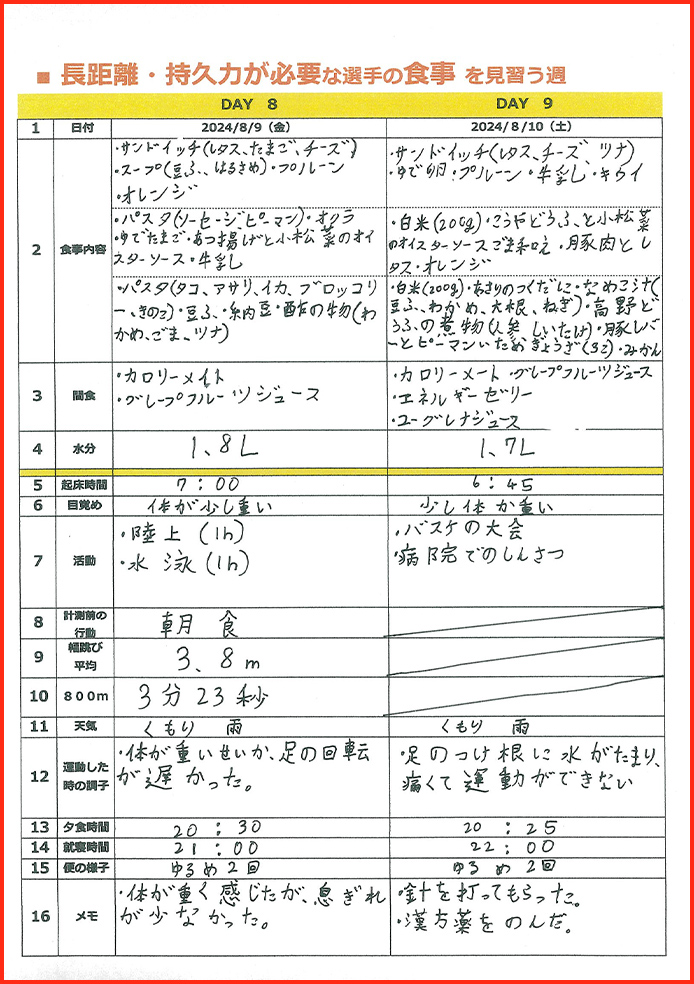 ■ 長距離・持久力が必要な選手の食事 を見習う週
DAY 8 DAY 9
1 日付 2024/8/9（金） 2024/8/10（土）
2 食事内容
・サンドイッチ(レタス、たまご、チーズ)
・スープ(豆ふ、はるさめ)・プルーン
・オレンジ
・パスタ(ソーセージ、ピーマン)・オクラ
ゆでたまご・あつ揚げと小松菜のオイ
スターソース・牛乳
・パスタ(タコ、アサリ、イカ、ブロッコリ
ー、きのこ)・豆ふ・納豆・酢の物(わ
かめ、ごま、ツナ)
・サンドイッチ(レタス、チーズ、ツナ)
・ゆで卵・プルーン・牛乳・キウイ
・白米(200g)・こうやどうふ、と小松菜
のオイスターソースごま和え・豚肉とレ
タス・オレンジ
・白米(200g)・あさりのつくだに・なめこ汁(
豆ふ、わかめ、大根、ねぎ)・高野ど
うふの煮物(人参 しいたけ)・豚レバ
ーとピーマンいためぎょうざ(3コ)・みかん
3 間食
・カロリーメイト
・グレープフルーツジュース
・カロリーメート・グレープフルーツジュース
・エネルギーゼリー
・ユーグレナジュース
4 水分 1、8L 1、7L
5 起床時間 7：00 6：45
6 目覚め 体が少し重い 少し体が重い
7 活動
・陸上(1h)
・水泳(1h)
・バスケの大会
・病院でのしんさつ
8 計測前の
行動 朝食
9 幅跳び
平均 3、8m
10 800m 3分23秒
11 天気 くもり 雨 くもり 雨
12 運動した
時の調子
・体が重いせいか、足の回転
が遅かった。
・足のつけ根に水がたまり、
痛くて運動ができない
13 夕食時間 20：30 20：25
14 就寝時間 21：00 22：00
15 便の様子 ゆるめ2回 ゆるめ2回
16 メモ
・体が重く感じたが、息ぎれ
が少なかった。
・針を打ってもらった。
・漢方薬をのんだ。